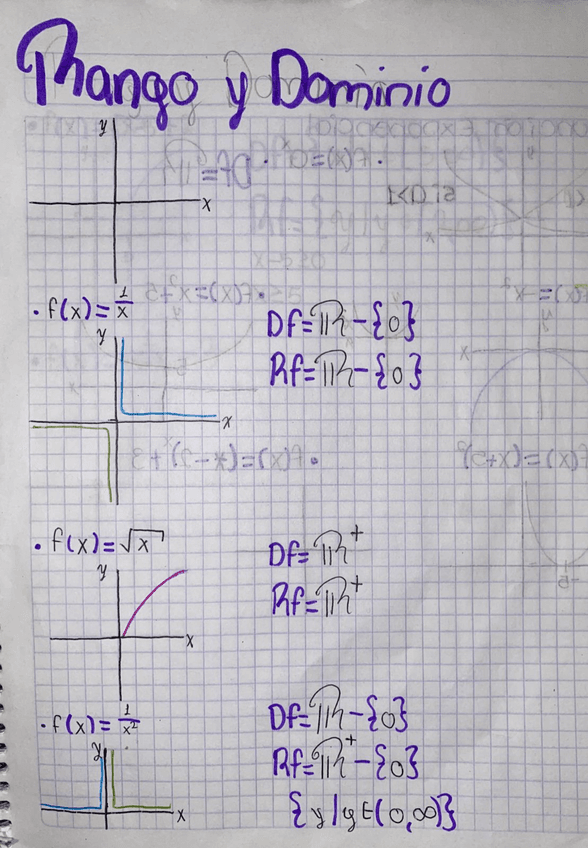 Rango y Dominio
y
x
• f(x) = 1/x
Df = ℝ - {0}
Rf = ℝ - {0}
y
x
• f(x) = √x
Df = ℝ⁺
Rf = ℝ⁺
y
x
• f(x) = 1/x²
Df = ℝ - {0}
Rf = ℝ⁺ - {0}
{y/y ∈ (0,∞)}
y
x